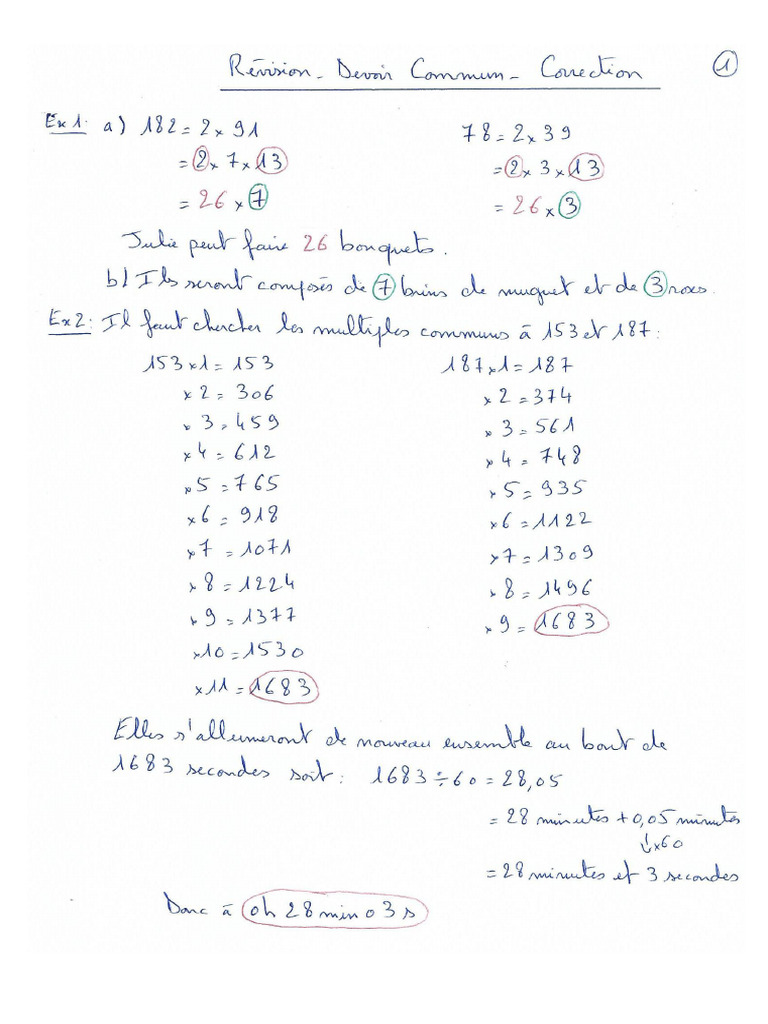 Révision - Devoir Commun - Correction 1
Ex 1: a) 182 = 2 × 91
= 2 × 7 × 13
= 26 × 7
78 = 2 × 39
= 2 × 3 × 13
= 26 × 3
Julie peut faire 26 bouquets.
b) Ils seront composés de 7 brins de muguet et de 3 roses.
Ex 2: Il faut chercher les multiples communs à 153 et 187 :
153 × 1 = 153
× 2 = 306
× 3 = 459
× 4 = 612
× 5 = 765
× 6 = 918
× 7 = 1071
× 8 = 1224
× 9 = 1377
× 10 = 1530
× 11 = 1683
187 × 1 = 187
× 2 = 374
× 3 = 561
× 4 = 748
× 5 = 935
× 6 = 1122
× 7 = 1309
× 8 = 1496
× 9 = 1683
Elles s'allumeront de nouveau ensemble au bout de
1683 secondes soit : 1683 ÷ 60 = 28,05
= 28 minutes + 0,05 minutes
↓ × 60
= 28 minutes et 3 secondes
Donc à 0h 28 min 03 s